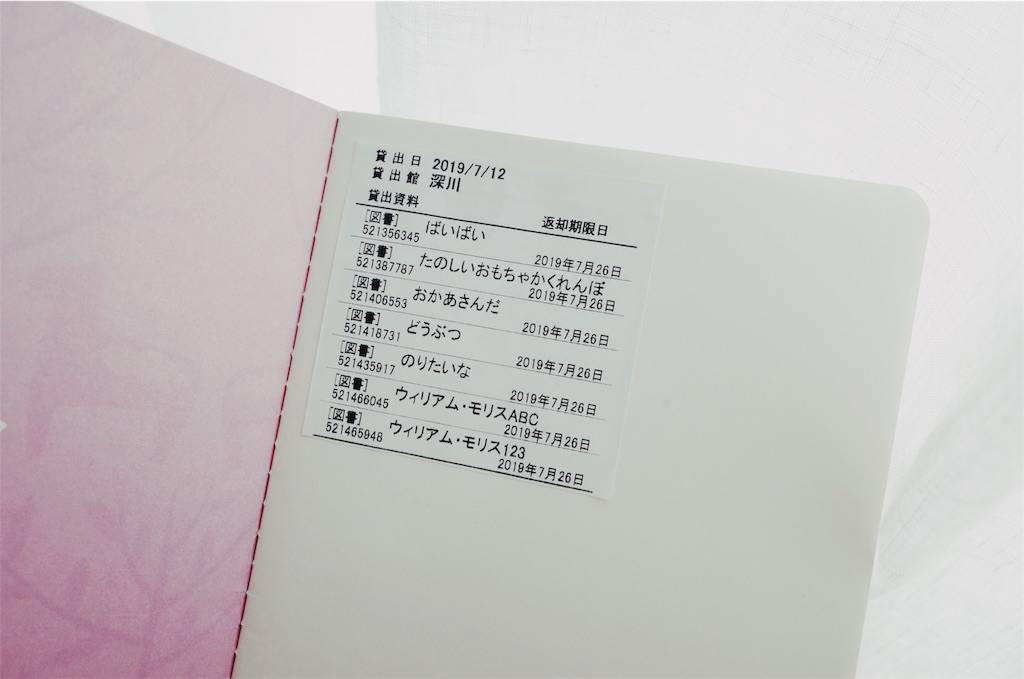 貸出日 2019/7/12
貸出館 深川
貸出資料 返却期限日
[図書] ばいばい
521356345 2019年7月26日
[図書] たのしいおもちゃかくれんぼ
521387787 2019年7月26日
[図書] おかあさんだ
521406553 2019年7月26日
[図書] どうぶつ
521418731 2019年7月26日
[図書] のりたいな
521435917 2019年7月26日
[図書] ウィリアム・モリスABC
521466045 2019年7月26日
[図書] ウィリアム・モリス123
521465948 2019年7月26日